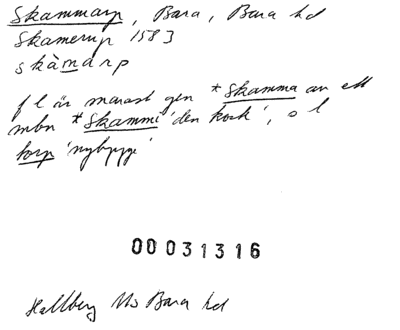 Skammarp, Bara, Bara hd
Skamerup 1583
skàmarp
f l är narast gen *Skamma av ett
mbn *Skammi 'den kort', s l
torp 'nybygge'
00031316
Hallberg Ms Bara hd